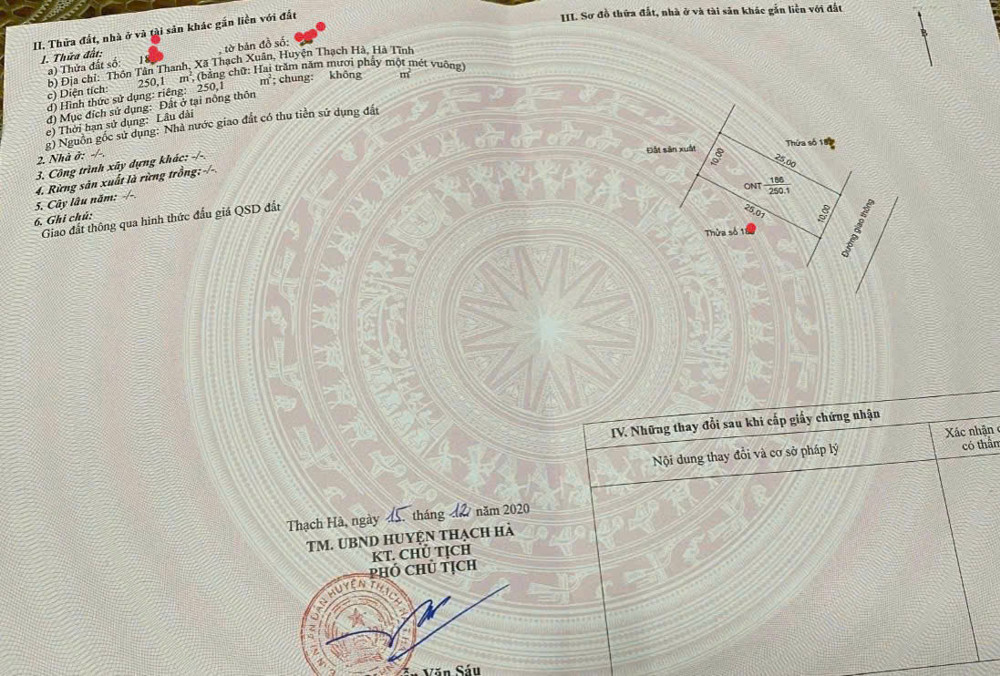 II. Thửa đất, nhà ở và tài sản khác gắn liền với đất
1. Thửa đất:
a) Thửa đất số: 18 , tờ bản đồ số:
b) Địa chỉ: Thôn Tân Thanh, Xã Thạch Xuân, Huyện Thạch Hà, Hà Tĩnh
c) Diện tích: 250,1 m², (bằng chữ: Hai trăm năm mươi phẩy một mét vuông)
d) Hình thức sử dụng: riêng: 250,1 m²; chung: không m²
đ) Mục đích sử dụng: Đất ở tại nông thôn
e) Thời hạn sử dụng: Lâu dài
g) Nguồn gốc sử dụng: Nhà nước giao đất có thu tiền sử dụng đất
2. Nhà ở: -/-.
3. Công trình xây dựng khác: -/-.
4. Rừng sản xuất là rừng trồng: -/-.
5. Cây lâu năm: -/-.
6. Ghi chú:
Giao đất thông qua hình thức đấu giá QSD đất
III. Sơ đồ thửa đất, nhà ở và tài sản khác gắn liền với đất
B
Đất sản xuất
Thửa số 18
10,00
25,00
ONT 186
250.1
25,01
10,00
Thửa số 18
Đường giao thông
IV. Những thay đổi sau khi cấp giấy chứng nhận
Nội dung thay đổi và cơ sở pháp lý
Xác nhận
có thẩm
Thạch Hà, ngày 15 tháng 12 năm 2020
TM. UBND HUYỆN THẠCH HÀ
KT. CHỦ TỊCH
PHÓ CHỦ TỊCH
Văn Sáu